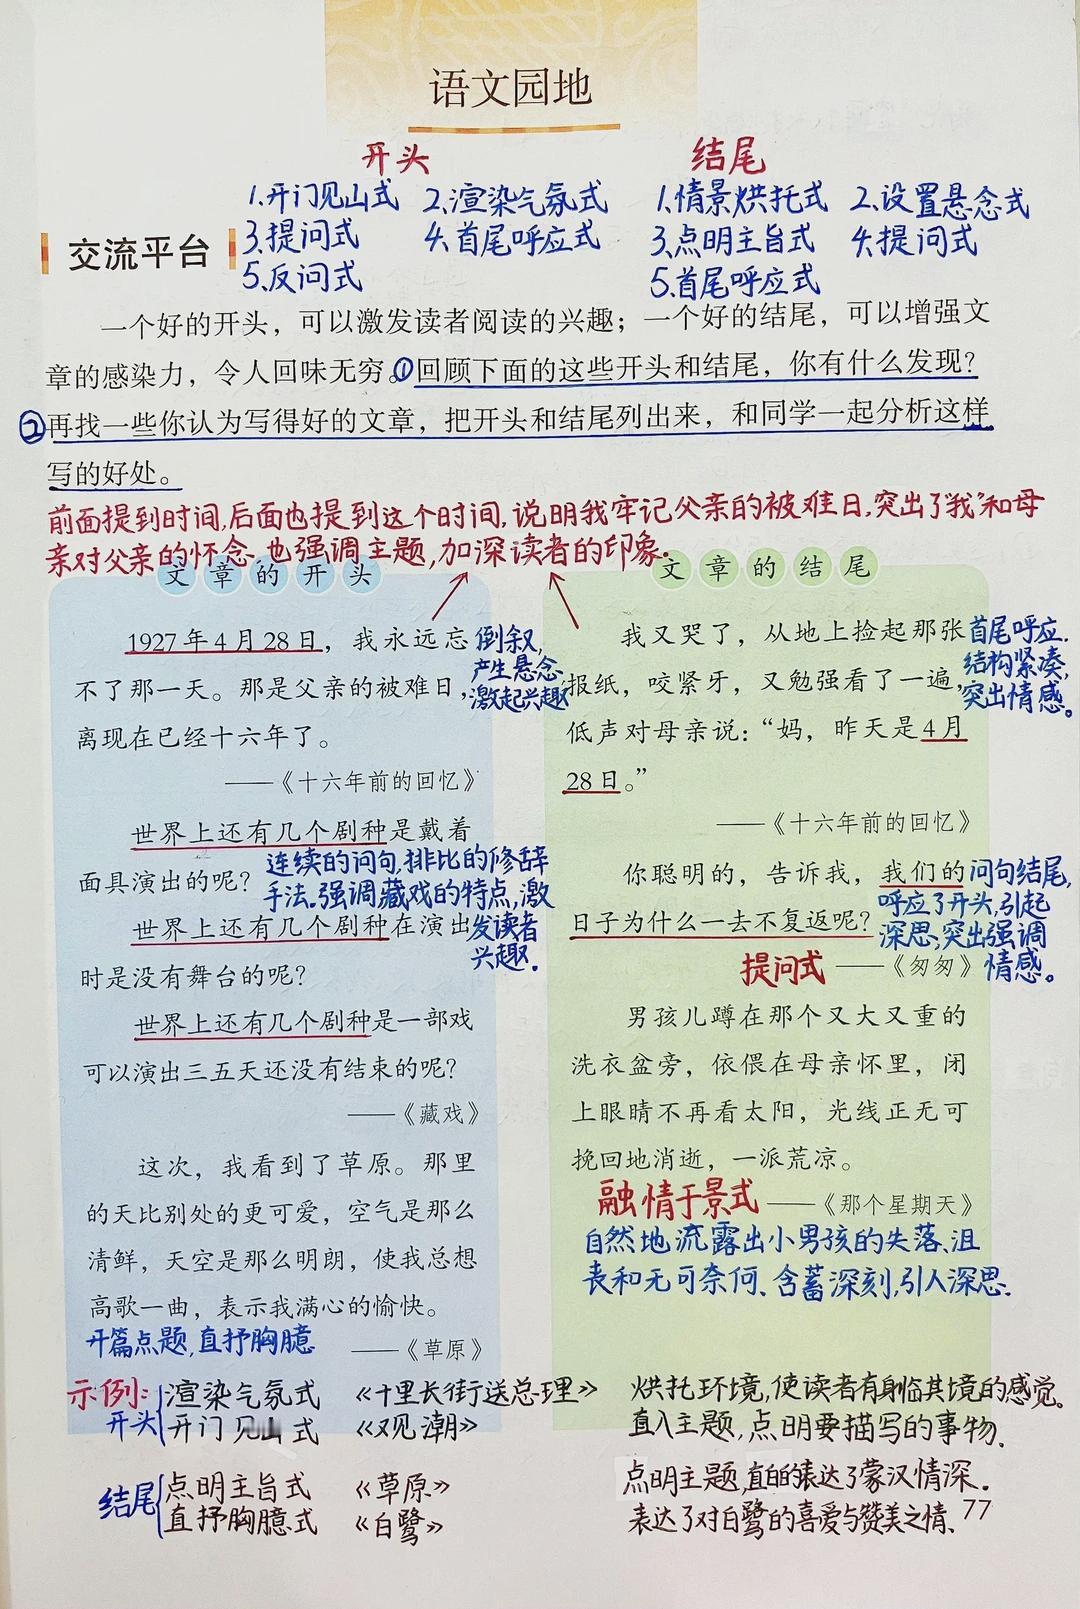 语文园地
开头
1.开门见山式 2.渲染气氛式
3.提问式 4.首尾呼应式
5.反问式
结尾
1.情景烘托式 2.设置悬念式
3.点明主旨式 4.提问式
5.首尾呼应式
交流平台
一个好的开头，可以激发读者阅读的兴趣；一个好的结尾，可以增强文
章的感染力，令人回味无穷。①回顾下面的这些开头和结尾，你有什么发现？
②再找一些你认为写得好的文章，把开头和结尾列出来，和同学一起分析这样
写的好处。
前面提到时间,后面也提到这个时间,说明我牢记父亲的被难日,突出了"我"和母
亲对父亲的怀念.也强调主题,加深读者的印象.
文章的开头
1927年4月28日，我永远忘
不了那一天。那是父亲的被难日，
离现在已经十六年了。
——《十六年前的回忆》
倒叙,
产生悬念,
激起兴趣
世界上还有几个剧种是戴着
面具演出的呢？
世界上还有几个剧种在演出
时是没有舞台的呢？
世界上还有几个剧种是一部戏
可以演出三五天还没有结束的呢？
——《藏戏》
连续的问句,排比的修辞
手法.强调藏戏的特点,激
发读者
兴趣.
这次，我看到了草原。那里
的天比别处的更可爱，空气是那么
清鲜，天空是那么明朗，使我总想
高歌一曲，表示我满心的愉快。
——《草原》
开篇点题,直抒胸臆
文章的结尾
我又哭了，从地上捡起那张
报纸，咬紧牙，又勉强看了一遍，
低声对母亲说：“妈，昨天是4月
28日。”
——《十六年前的回忆》
首尾呼应.
结构紧凑,
突出情感。
你聪明的，告诉我，我们的
日子为什么一去不复返呢？
——《匆匆》
提问式
问句结尾,
呼应了开头,引起
深思、突出强调
情感。
男孩儿蹲在那个又大又重的
洗衣盆旁，依偎在母亲怀里，闭
上眼睛不再看太阳，光线正无可
挽回地消逝，一派荒凉。
——《那个星期天》
融情于景式
自然地流露出小男孩的失落、沮
丧和无可奈何、含蓄深刻,引人深思.
示例:
开头 渲染气氛式 《十里长街送总理》 烘托环境,使读者有身临其境的感觉。
开门见山式 《观潮》 直入主题,点明要描写的事物.
结尾 点明主旨式 《草原》 点明主题,直白的表达了蒙汉情深.
直抒胸臆式 《白鹭》 表达了对白鹭的喜爱与赞美之情、
77